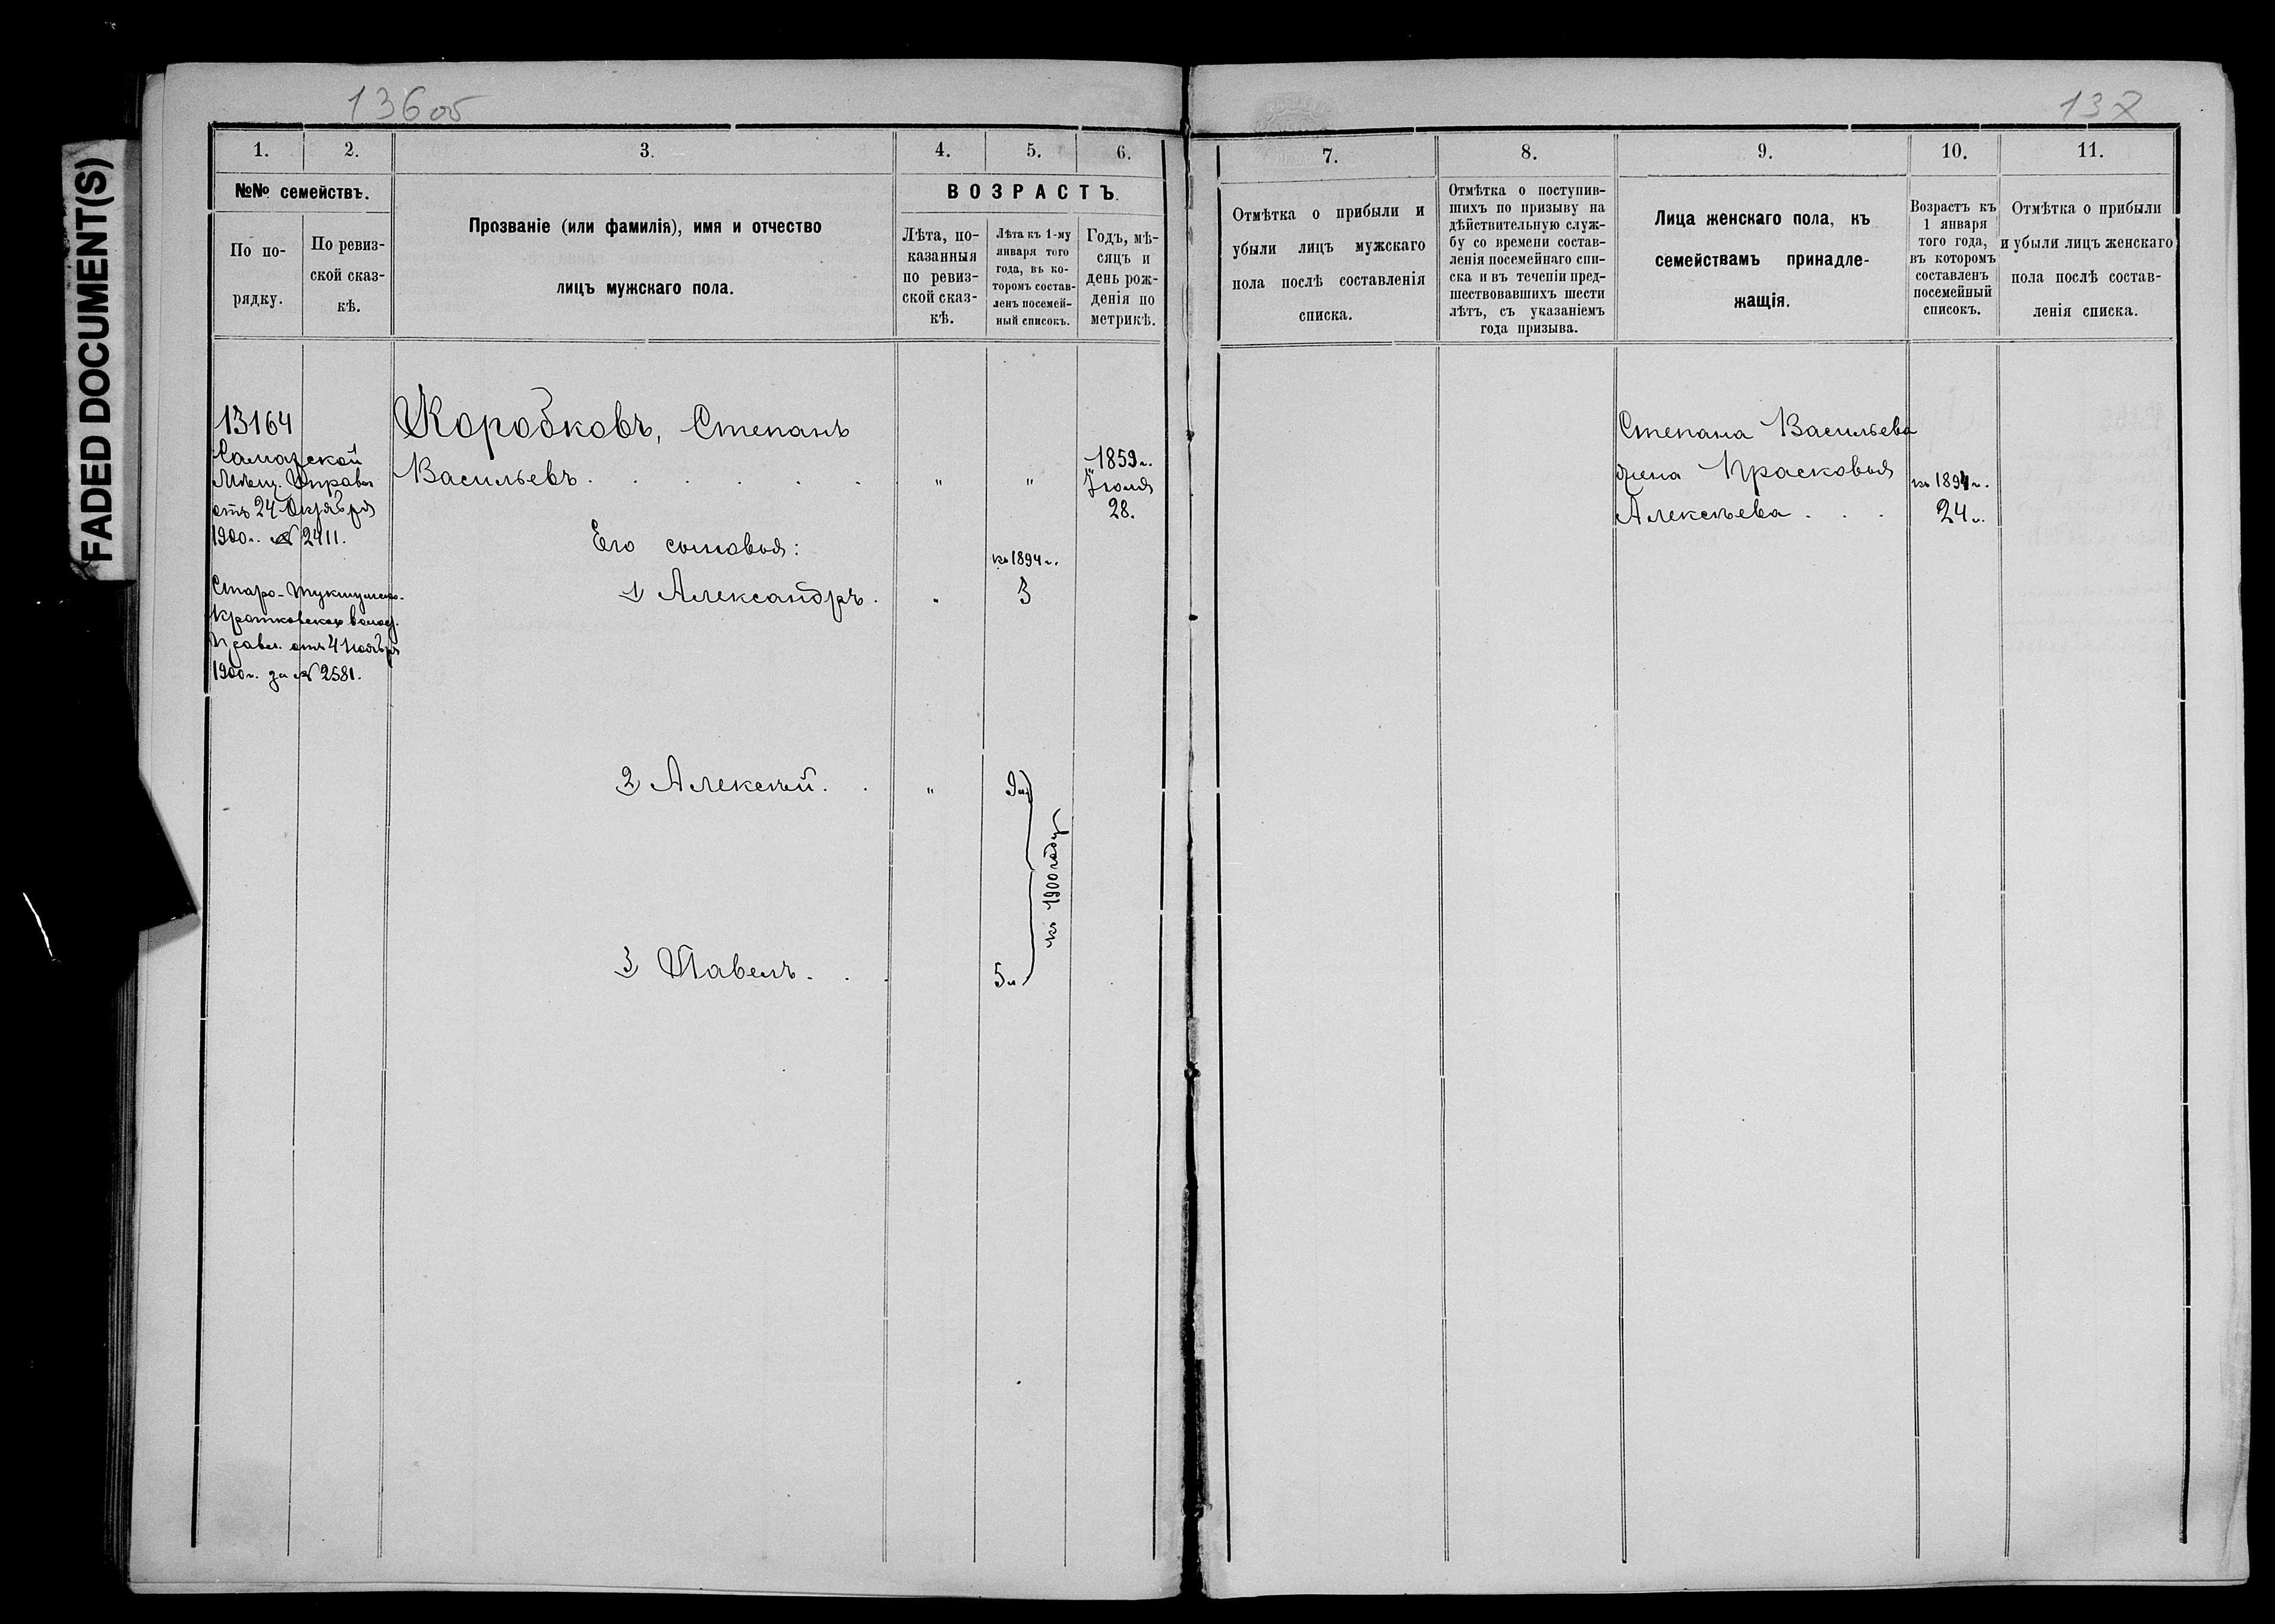 FADED DOCUMENT(S)
136об
1. 2. 3. 4. 5. 6.
№№ семействъ.
По по-
рядку.
По ревиз-
ской сказ-
кѣ.
Прозваніе (или фамилія), имя и отчество
лицъ мужскаго пола.
ВОЗРАСТЪ.
Лѣта, по-
казанныя
по ревиз-
ской сказ-
кѣ.
Лѣта къ 1-му
января того
года, въ ко-
торомъ состав-
ленъ посемей-
ный списокъ.
Годъ, мѣ-
сяцъ и
день рож-
денія по
метрикѣ.
13164
Самарской
Мѣщ. Управы
отъ 24 Октября
1900 г. № 2411.
Старо-
Кротковскаго волос.
Правл. отъ 4 Ноября
1900 г. за № 2581.
Коробковъ, Степанъ
Васильевъ . . . . . " "
1859 г.
Іюля
28.
Его сыновья:
къ 1894 г.
1) Александръ. " 3
2) Алексѣй. . " 9 л.
къ 1900 году
3) Павелъ. . . 5 л.
137
7. 8. 9. 10. 11.
Отмѣтка о прибыли и
убыли лицъ мужскаго
пола послѣ составленія
списка.
Отмѣтка о поступив-
шихъ по призыву на
дѣйствительную служ-
бу со времени состав-
ленія посемейнаго спи-
ска и въ теченіи пред-
шествовавшихъ шести
лѣтъ, съ указаніемъ
года призыва.
Лица женскаго пола, къ
семействамъ принадле-
жащія.
Возрастъ къ
1 января
того года,
въ которомъ
составленъ
посемейный
списокъ.
Отмѣтка о прибыли
и убыли лицъ женскаго
пола послѣ состав-
ленія списка.
Степана Васильева
жена Прасковья
Алексѣева . . .
къ 1894 г.
24 г.